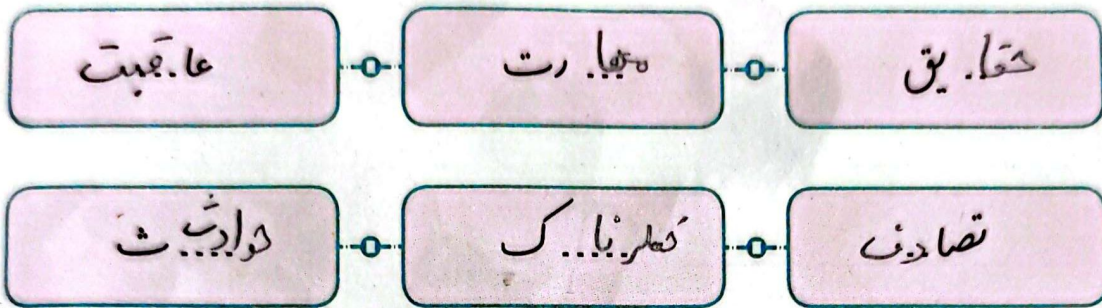 حقایق مهارت عاقبت
تصادف خطرناک حوادث